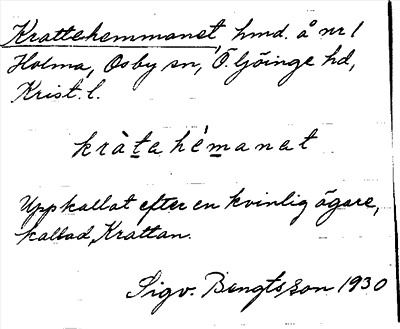 Krattehemmanet, hmd. å nr 1
Holma, Osby sn, Ö. Göinge hd,
Krist. l.
kràtahémanat
Uppkallat efter en kvinlig ägare,
kallad Krattan.
Sigv. Bengtsson 1930